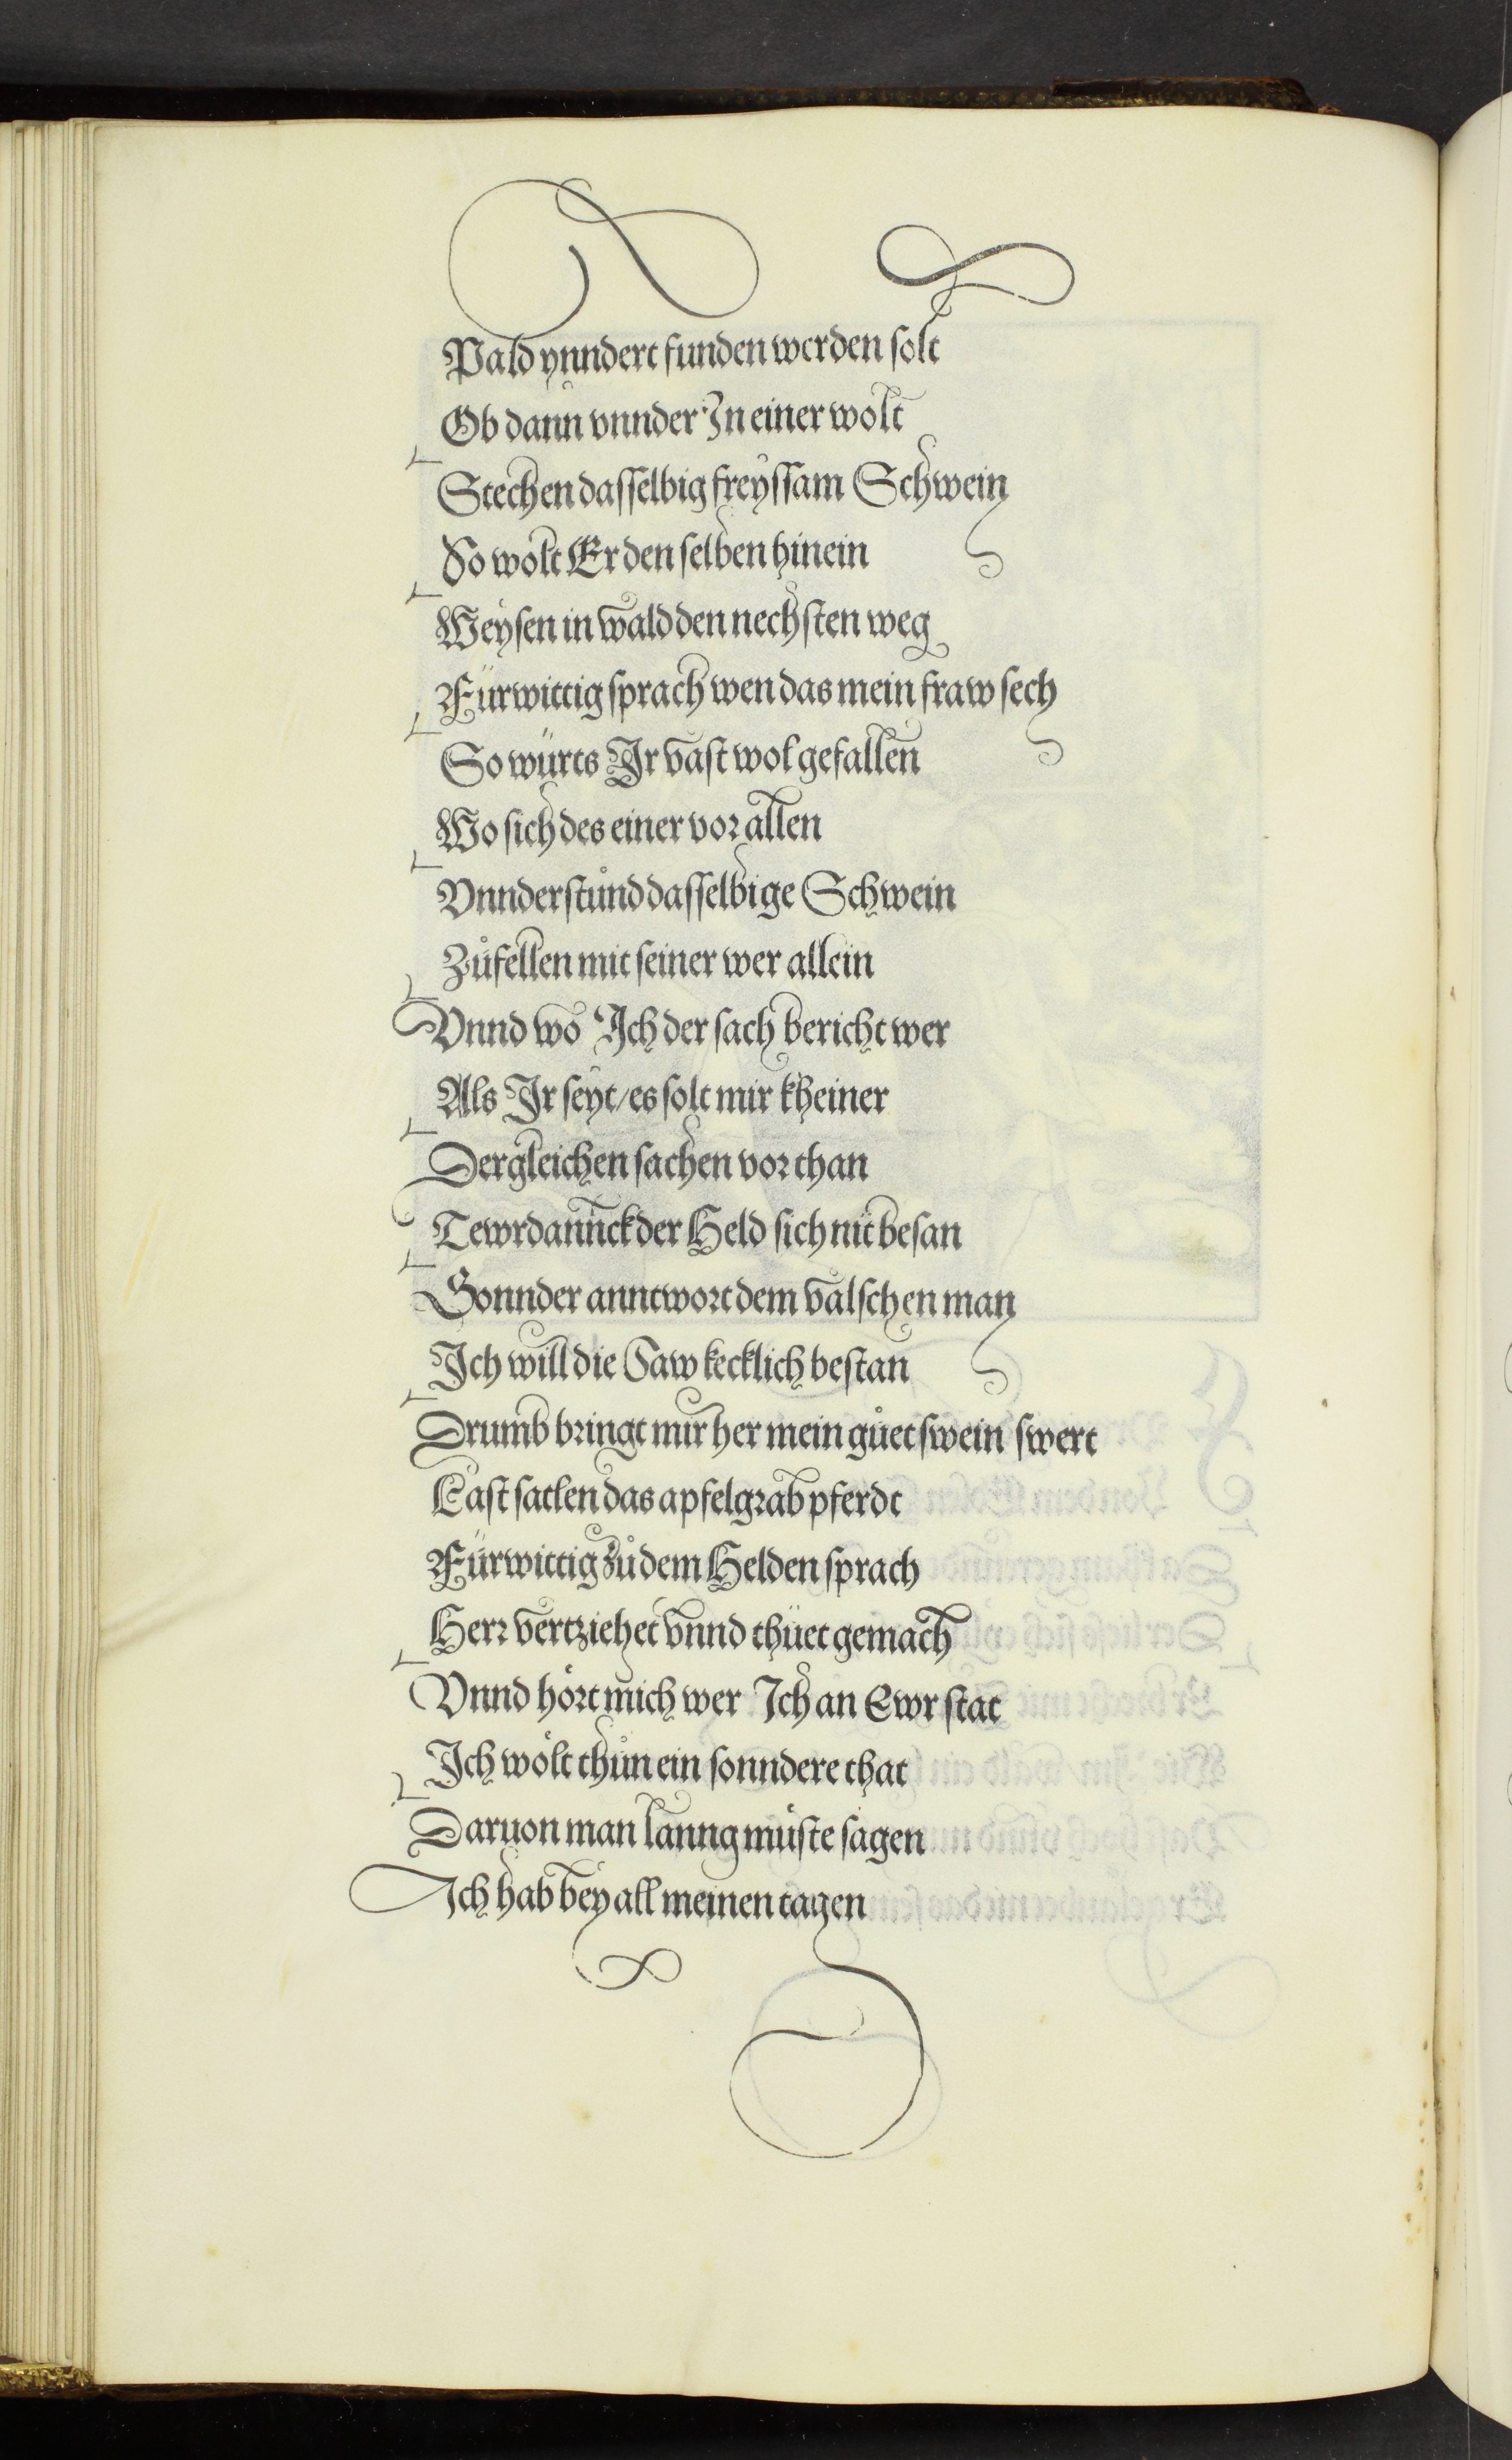 Pald ynndert funden werden solt
Ob dann vnnder In einer wolt
Stechen dasselbig freyssam Schwein
So wolt Er den selben hinein
Weysen in wald den nechsten weg
Fürwittig sprach wen das mein fraw sech
So würts Ir vast wol gefallen
Wo sich des einer vor allen
Vnnderstůnd dasselbige Schwein
Zůfellen mit seiner wer allein
Vnnd wo Ich der sach bericht wer
Als Ir seyt/es solt mir kheiner
Dergleichen sachen vor than
Tewrdannck der Held sich nit besan
Sonnder anntwort dem valschen man
Ich will die Saw kecklich bestan
Drumb bringt mir her mein gůet swein swert
Last satlen das apfelgrab pferdt
Fürwittig zů dem Helden sprach
Herr vertziehet vnnd thüet gemach
Vnnd hört mich wer Ich an Ewr stat
Ich wölt thůn ein sonndere that
Daruon man lanng müste sagen
Ich hab bey all meinen tagen